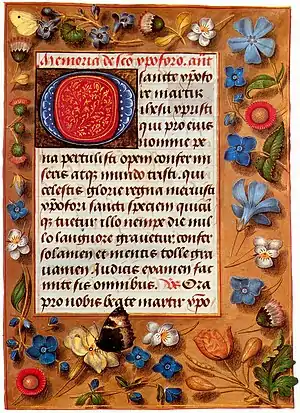 Memoria de sco xpoforo. ant
Sancte xpofo
re martir
ihesu xpristi
qui pro eius
nomine pe
na pertulisti opem confer mi
seris atqz mundo tristi. qui
celestis glorie regna meruisti
xpofora sancti speciem quicū
qz tuetur illo nempe die nul
lo languore grauetur. confer
solamen et mentis tolle gra
uamen. Iudicis examen fac
mite sis omnibus. Vs Ora
pro nobis beate martir xpo